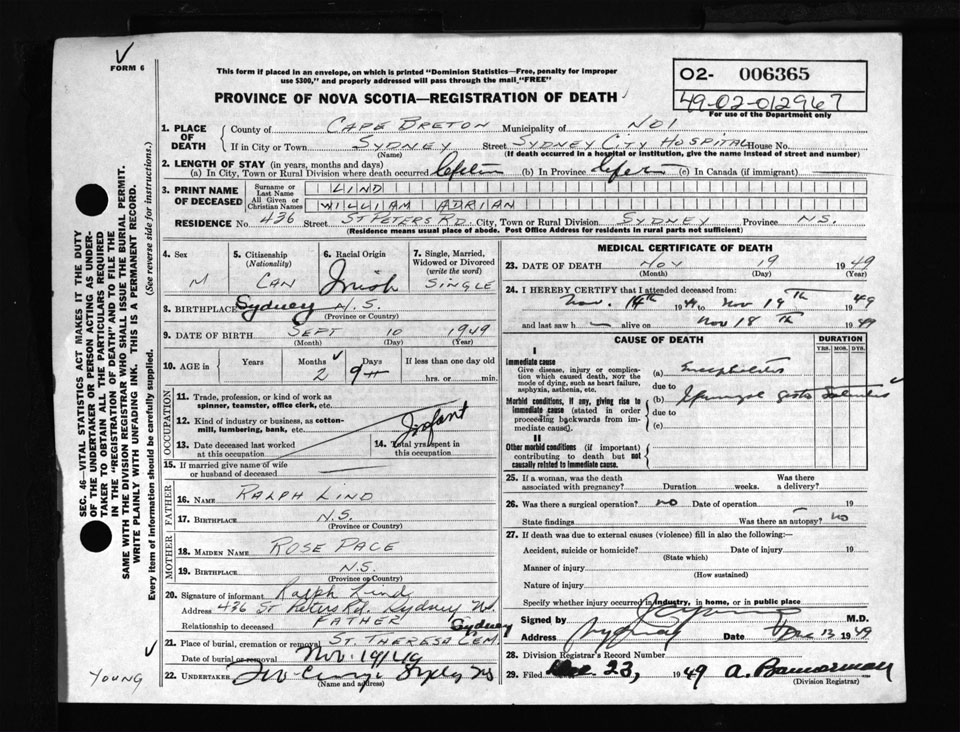 FORM 6
This form if placed in an envelope, on which is printed "Dominion Statistics—Free, penalty for improper
use $300," and properly addressed will pass through the mail "FREE"
PROVINCE OF NOVA SCOTIA—REGISTRATION OF DEATH
02- 006365
49-02-012967
For use of the Department only
1. PLACE OF DEATH
County of CAPE BRETON Municipality of NO1
If in City or Town SYDNEY Street SYDNEY CITY HOSPITAL House No.
(Name) (If death occurred in a hospital or institution, give the name instead of street and number)
2. LENGTH OF STAY (in years, months and days)
(a) In City, Town or Rural Division where death occurred (b) In Province (c) In Canada (if immigrant)
3. PRINT NAME OF DECEASED
Surname or Last Name LIND
All Given or Christian Names WILLIAM ADRIAN
RESIDENCE No. 436 Street ST PETERS RD. City, Town or Rural Division SYDNEY Province N.S.
(Residence means usual place of abode. Post Office Address for residents in rural parts not sufficient)
4. Sex
M
5. Citizenship (Nationality)
CAN
6. Racial Origin
Irish
7. Single, Married, Widowed or Divorced (write the word)
SINGLE
8. BIRTHPLACE Sydney N.S.
(Province or Country)
9. DATE OF BIRTH SEPT 10 1949
(Month) (Day) (Year)
10. AGE in Years Months 2 Days 9 If less than one day old hrs. or min.
OCCUPATION
11. Trade, profession, or kind of work as spinner, teamster, office clerk, etc.
12. Kind of industry or business, as cotton-mill, lumbering, bank, etc.
Infant
13. Date deceased last worked at this occupation
14. Total yrs spent in this occupation
15. If married give name of wife or husband of deceased
FATHER
16. NAME RALPH LIND
17. BIRTHPLACE N.S.
(Province or Country)
MOTHER
18. MAIDEN NAME ROSE PACE
19. BIRTHPLACE N.S.
(Province or Country)
20. Signature of informant Ralph Lind
Address 436 St Peters Rd. Sydney N.S.
Relationship to deceased FATHER
21. Place of burial, cremation or removal ST. THERESA CEM Sydney
Date of burial or removal Nov. 19/49
22. UNDERTAKER
(Name and address)
YOUNG
MEDICAL CERTIFICATE OF DEATH
23. DATE OF DEATH NOV 19 1949
(Month) (Day) (Year)
24. I HEREBY CERTIFY that I attended deceased from:
Nov. 14th 1949 to Nov 19th 1949
and last saw h alive on Nov 18th 1949
CAUSE OF DEATH
DURATION
YRS. MOS. DYS.
I
Immediate cause
Give disease, injury or complication which caused death, NOT the mode of dying, such as heart failure, asphyxia, asthenia, etc.
(a) Encephalitis
due to
Morbid conditions, if any, giving rise to immediate cause (stated in order proceeding backwards from immediate cause).
(b)
due to
(c)
II
Other morbid conditions (if important) contributing to death but not causally related to immediate cause.
25. If a woman, was the death associated with pregnancy? Duration weeks. Was there a delivery?
26. Was there a surgical operation? no Date of operation 19
State findings Was there an autopsy? no
27. If death was due to external causes (violence) fill in also the following:—
Accident, suicide or homicide? Date of injury 19
(State which)
Manner of injury
(How sustained)
Nature of injury
Specify whether injury occurred in industry, in home, or in public place
Signed by M.D.
Address Sydney Date Dec 13 1949
28. Division Registrar's Record Number
29. Filed Dec 23, 1949
(Division Registrar)
SEC. 46—VITAL STATISTICS ACT MAKES IT THE DUTY
OF THE UNDERTAKER OR PERSON ACTING AS UNDER-
TAKER TO OBTAIN ALL THE PARTICULARS REQUIRED
IN THE "REGISTRATION OF DEATH" AND TO FILE THE
SAME WITH THE DIVISION REGISTRAR WHO SHALL ISSUE THE BURIAL PERMIT.
WRITE PLAINLY WITH UNFADING INK. THIS IS A PERMANENT RECORD.
Every item of information should be carefully supplied. (See reverse side for instructions.)